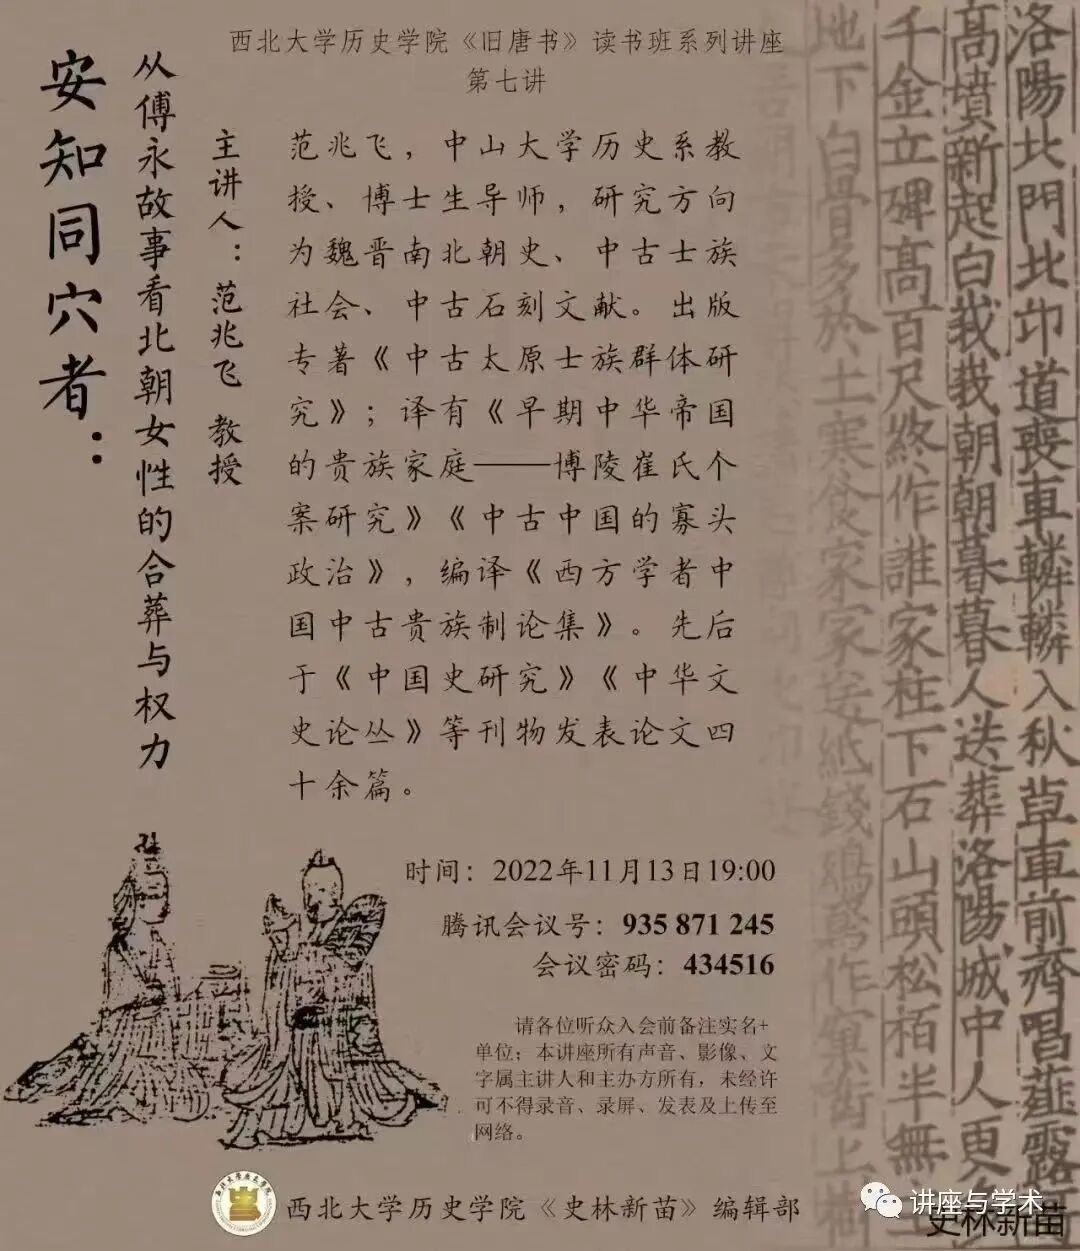 西北大学历史学院《旧唐书》读书班系列讲座
第七讲
安知同穴者：
从傅永故事看北朝女性的合葬与权力
主讲人：范兆飞 教授
范兆飞，中山大学历史系教
授、博士生导师，研究方向
为魏晋南北朝史、中古士族
社会、中古石刻文献。出版
专著《中古太原士族群体研
究》；译有《早期中华帝国
的贵族家庭——博陵崔氏个
案研究》《中古中国的寡头
政治》，编译《西方学者中
国中古贵族制论集》。先后
于《中国史研究》《中华文
史论丛》等刊物发表论文四
十余篇。
时间：2022年11月13日19:00
腾讯会议号：935 871 245
会议密码：434516
请各位听众入会前备注实名+
单位；本讲座所有声音、影像、文
字属主讲人和主办方所有，未经许
可不得录音、录屏、发表及上传至
网络。
西北大学历史学院《史林新苗》编辑部
洛陽北門北邙道喪車轔轔入秋草車前齊唱薤露
高墳新起白峩峩朝朝暮暮人送葬洛陽城中人更
千金立碑高百尺終作誰家柱下石山頭松栢半無
地下白骨多於土寒食家家送紙錢鴟鳶作窠銜上樹
讲座与学术
史林新苗